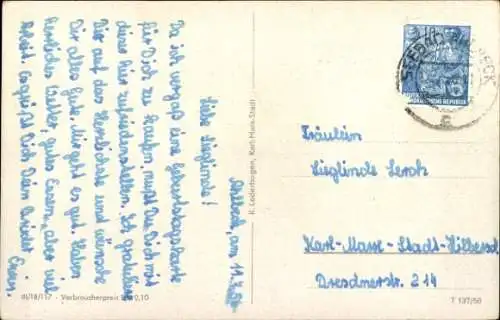 Ahlbeck, am 11.7.
Liebe Sieglinde!
Da ich vergaß eine Geburtstagskarte
für Dich zu kaufen mußt Du Dich mit
dieser hier zufriedenstellen. Ich gratuliere
Dir auf das Herzlichste und wünsche
Dir alles Gute. Mir geht es gut. Haben
herrliches Wetter, gutes Essen, aber viel
Arbeit. Es grüßt Dich Dein
Fräulein
Sieglinde Lerch
Karl-Marx-Stadt-Hilbersd.
Dresdnerstr. 214
K. Lederbogen, Karl-Marx-Stadt
III/18/117 - Verbraucherpreis DM 0,10
T 137/56
SEEBAD AHLBECK
DEUTSCHE DEMOKRATISCHE REPUBLIK
c